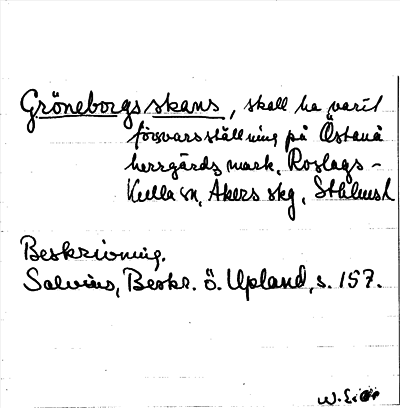 Gröneborgs skans, skall ha varit
försvarsställning på Östanå
herrgårds mark, Roslags-
Kulla sn, Åkers skg, Sthlms l
Beskrivning.
Salvius, Beskr. ö. Upland, s. 157.